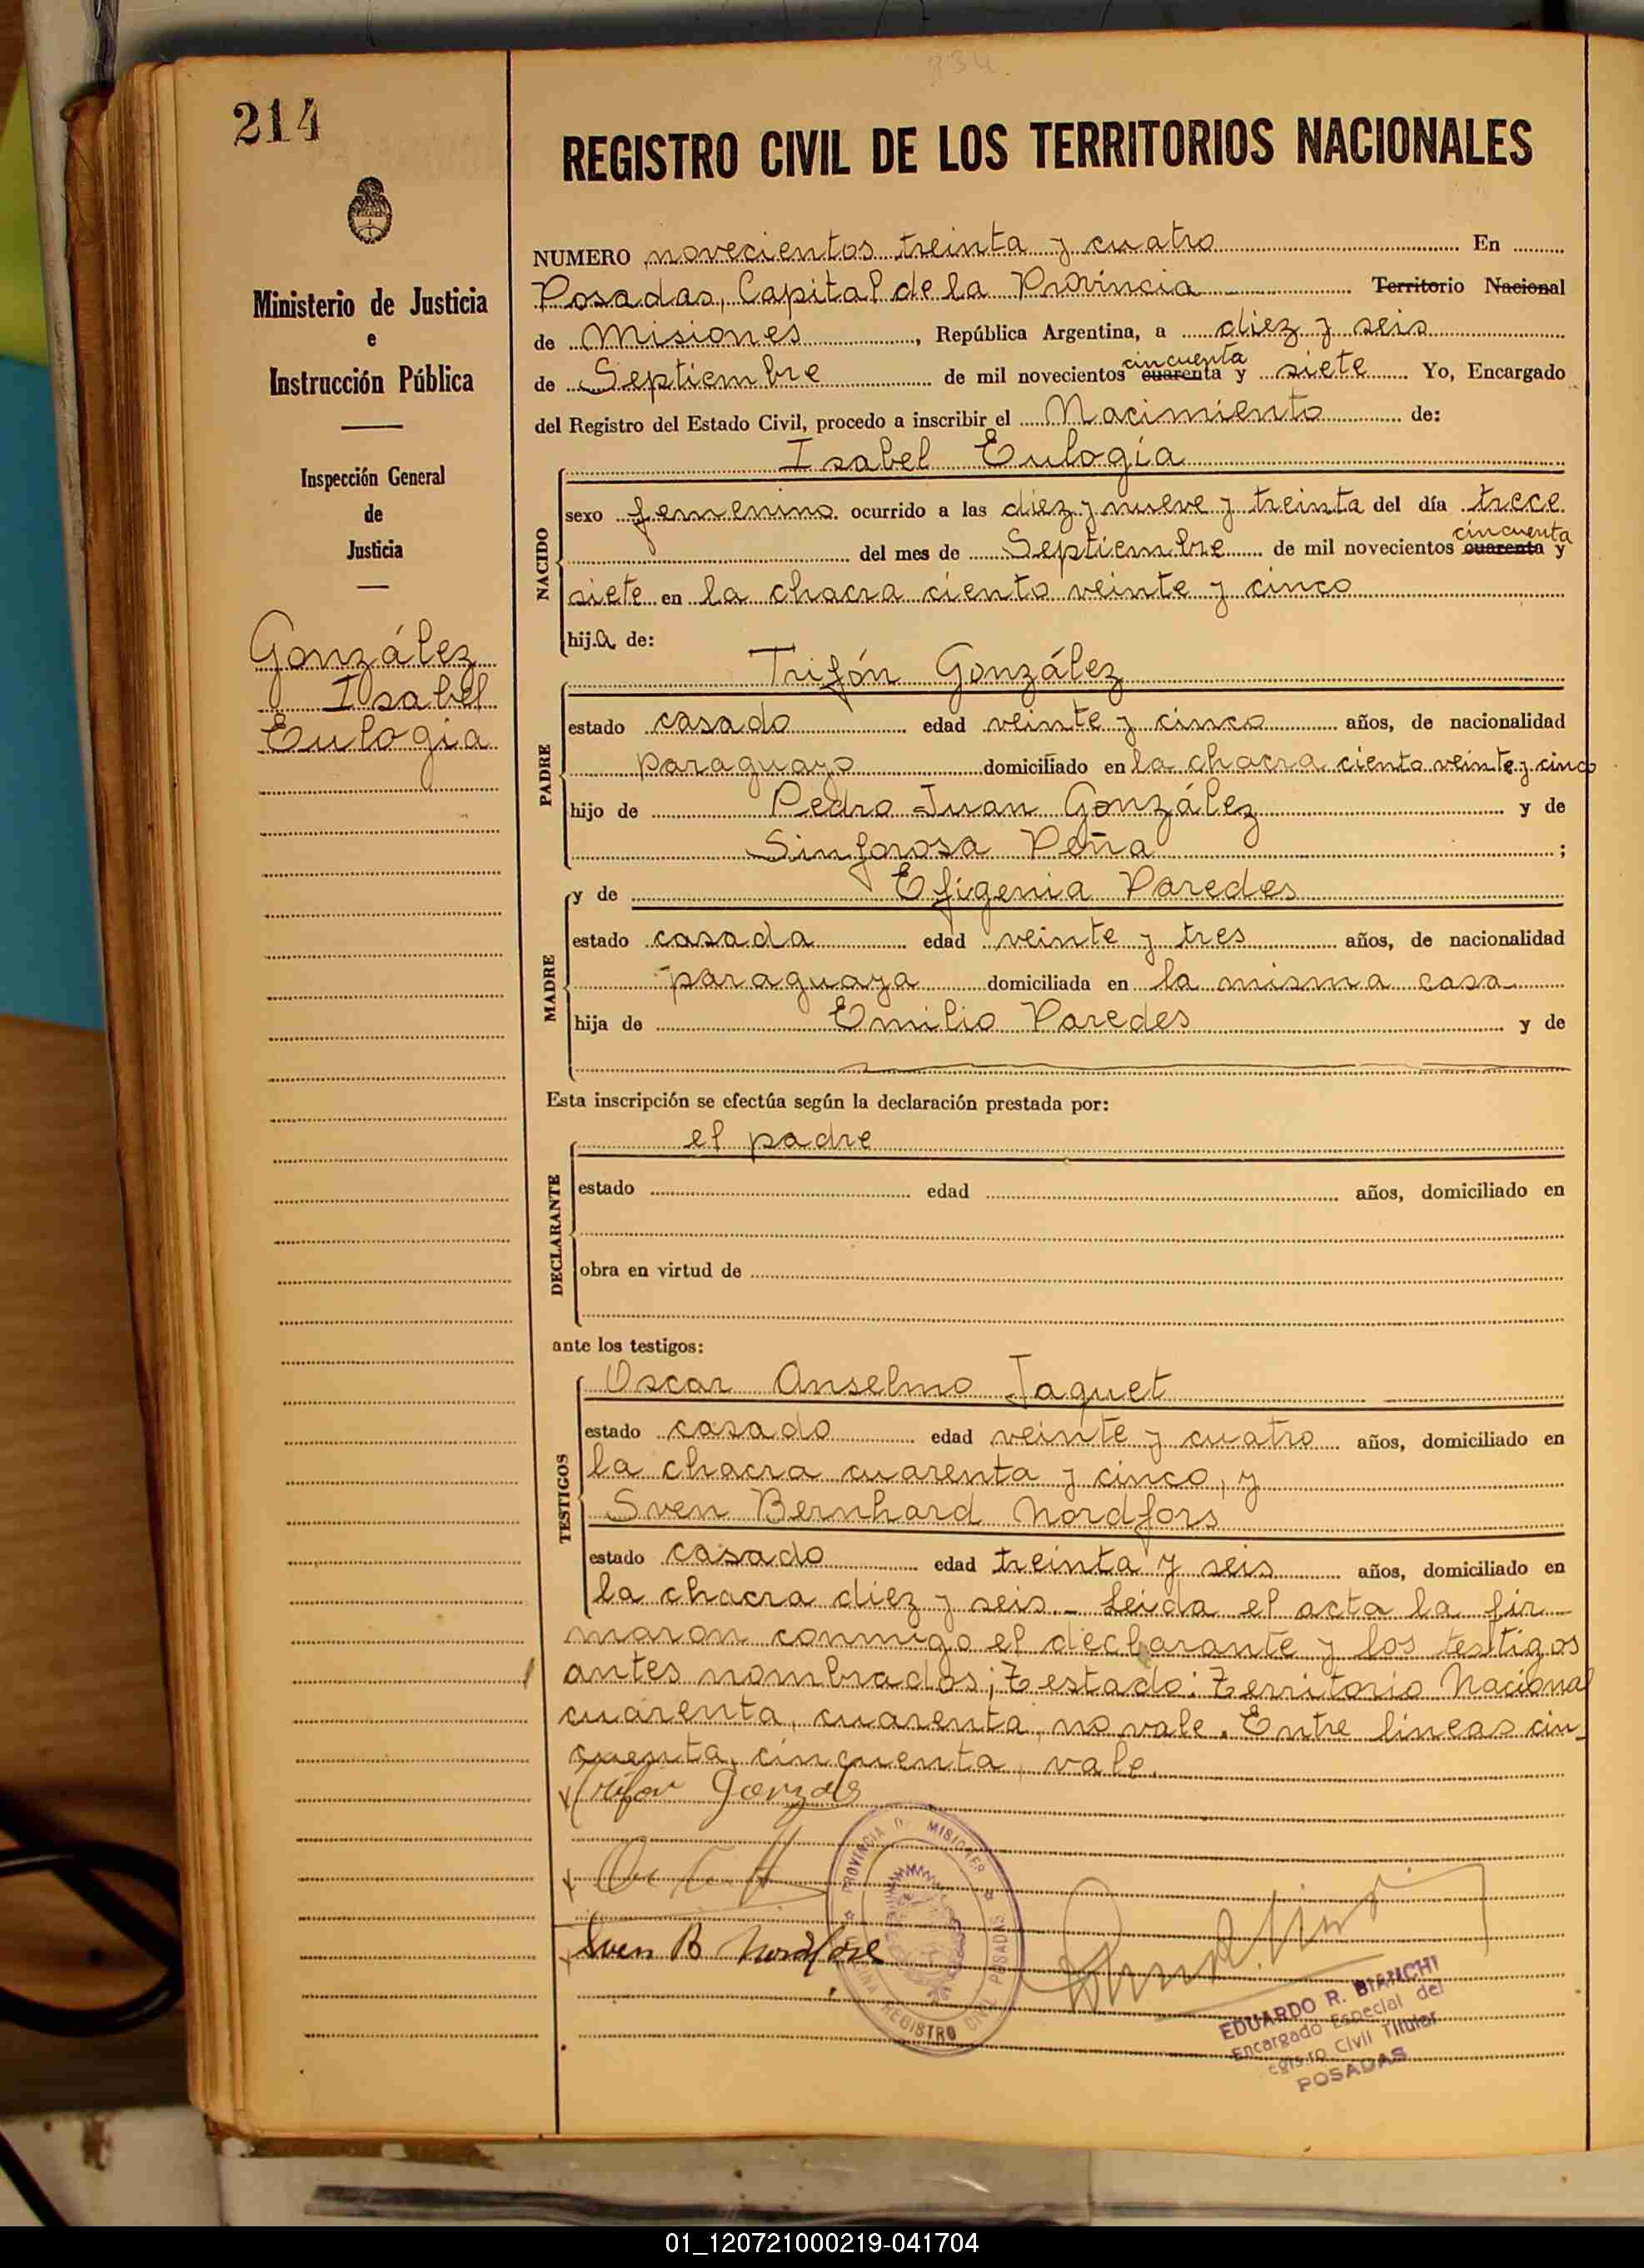 934
214
REGISTRO CIVIL DE LOS TERRITORIOS NACIONALES
Ministerio de Justicia
e
Instrucción Pública
Inspección General
de
Justicia
González
Isabel
Eulogia
NUMERO novecientos treinta y cuatro En
Posadas, Capital de la Provincia Territorio Nacional
de Misiones, República Argentina, a diez y seis
cincuenta
de Septiembre de mil novecientos cuarenta y siete Yo, Encargado
del Registro del Estado Civil, procedo a inscribir el Nacimiento de:
Isabel Eulogia
NACIDO
sexo femenino ocurrido a las diez y nueve y treinta del día trece
cincuenta
del mes de Septiembre de mil novecientos cuarenta y
siete en la chacra ciento veinte y cinco
hija de:
Trifón González
PADRE
estado casado edad veinte y cinco años, de nacionalidad
paraguayo domiciliado en la chacra ciento veinte y cinco
hijo de Pedro Juan González y de
Sinforosa Peña ;
y de Efigenia Paredes
MADRE
estado casada edad veinte y tres años, de nacionalidad
paraguaya domiciliada en la misma casa
hija de Emilio Paredes y de
Esta inscripción se efectúa según la declaración prestada por:
el padre
DECLARANTE
estado edad años, domiciliado en
obra en virtud de
ante los testigos:
Oscar Anselmo Jaquet
TESTIGOS
estado casado edad veinte y cuatro años, domiciliado en
la chacra cuarenta y cinco, y
Sven Bernhard Nordfors
estado casado edad treinta y seis años, domiciliado en
la chacra diez y seis.- Leida el acta la fir-
maron conmigo el declarante y los testigos
antes nombrados; Testado: Territorio Nacional
cuarenta, cuarenta, no vale. Entre lineas cin-
cuenta, cincuenta, vale.
Trifon Gonzales
Sven B Nordfors
PROVINCIA D MISIONES
OFICINA REGISTRO CIVIL POSADAS
EDUARDO R. BIANCHI
Encargado Especial del
egis.ro Civil Titular
POSADAS
01_120721000219-041704